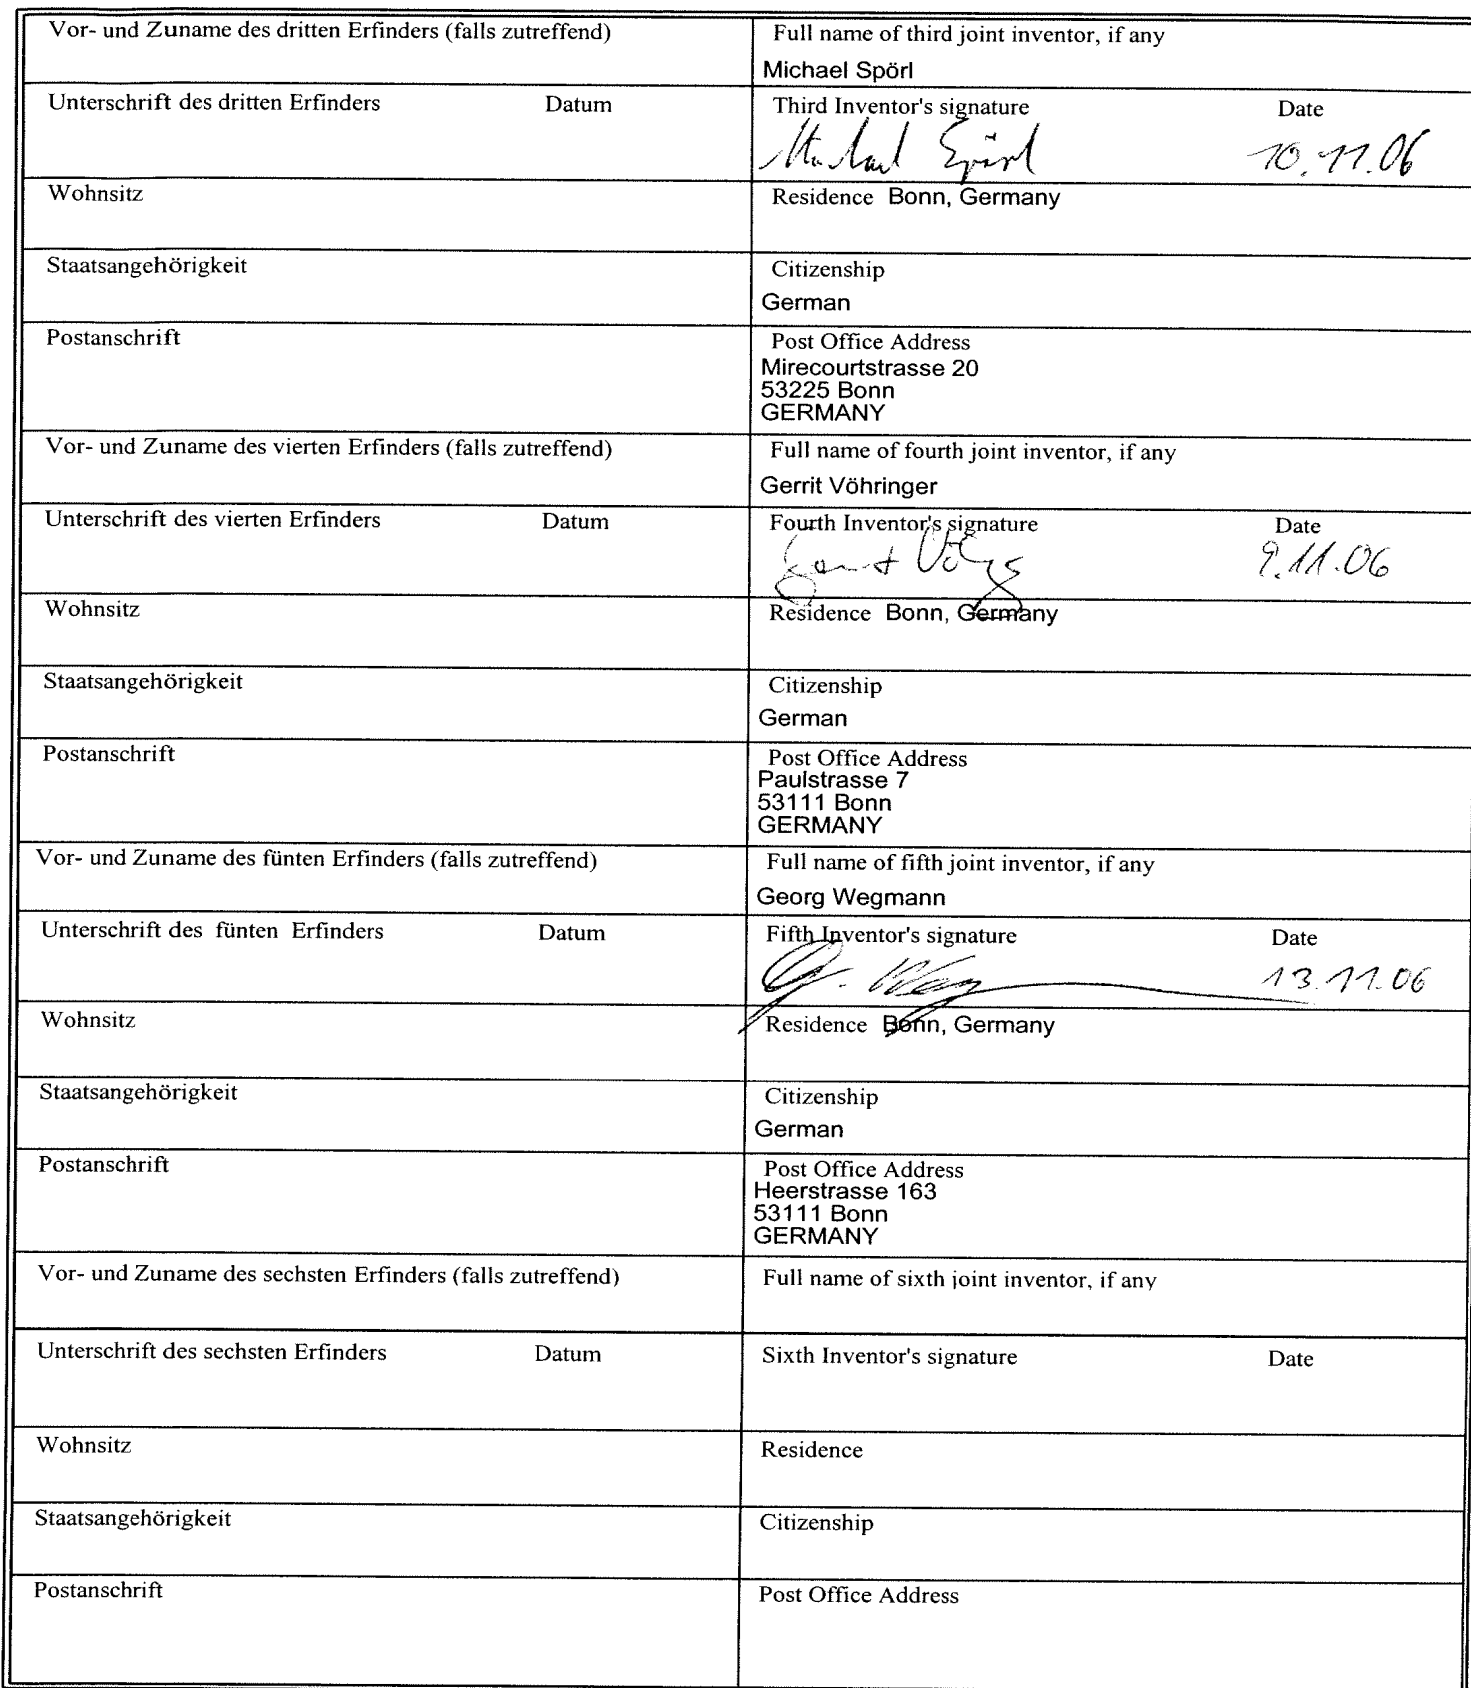 Vor- und Zuname des dritten Erfinders (falls zutreffend)
Full name of third joint inventor, if any
Michael Spörl
Unterschrift des dritten Erfinders Datum
Third Inventor's signature Date
Michael Spörl 10.11.06
Wohnsitz
Residence Bonn, Germany
Staatsangehörigkeit
Citizenship
German
Postanschrift
Post Office Address
Mirecourtstrasse 20
53225 Bonn
GERMANY
Vor- und Zuname des vierten Erfinders (falls zutreffend)
Full name of fourth joint inventor, if any
Gerrit Vöhringer
Unterschrift des vierten Erfinders Datum
Fourth Inventor's signature Date
9.11.06
Wohnsitz
Residence Bonn, Germany
Staatsangehörigkeit
Citizenship
German
Postanschrift
Post Office Address
Paulstrasse 7
53111 Bonn
GERMANY
Vor- und Zuname des fünten Erfinders (falls zutreffend)
Full name of fifth joint inventor, if any
Georg Wegmann
Unterschrift des fünten Erfinders Datum
Fifth Inventor's signature Date
13.11.06
Wohnsitz
Residence Bonn, Germany
Staatsangehörigkeit
Citizenship
German
Postanschrift
Post Office Address
Heerstrasse 163
53111 Bonn
GERMANY
Vor- und Zuname des sechsten Erfinders (falls zutreffend)
Full name of sixth joint inventor, if any
Unterschrift des sechsten Erfinders Datum
Sixth Inventor's signature Date
Wohnsitz
Residence
Staatsangehörigkeit
Citizenship
Postanschrift
Post Office Address